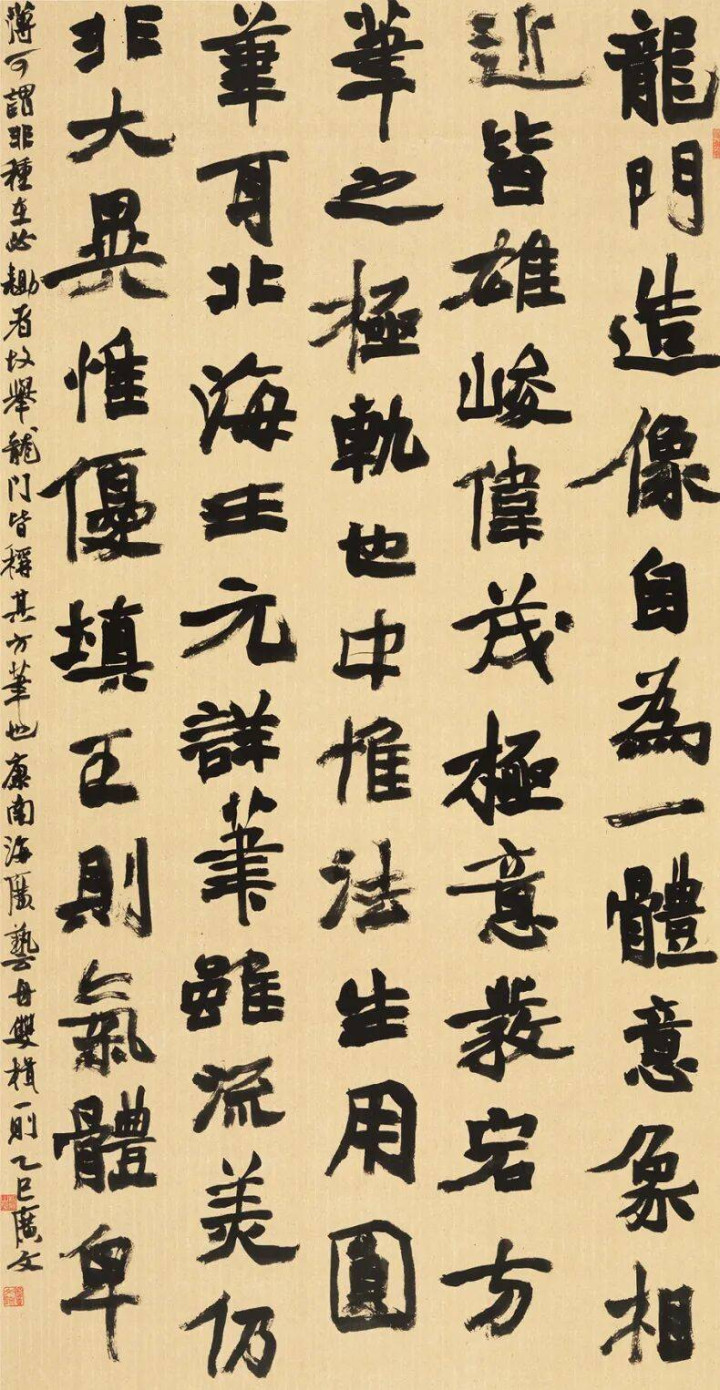 龍門造像自為一體意象相
近皆雄峻偉茂極意發宕方
筆之極軌也中惟法生用圓
筆耳北海王元詳筆雖流美仍
非大異惟優填王則氣體卑
薄可謂非種在必鋤者故舉龍门皆稱其方筆也康南海廣藝舟雙楫一則乙巳廣文